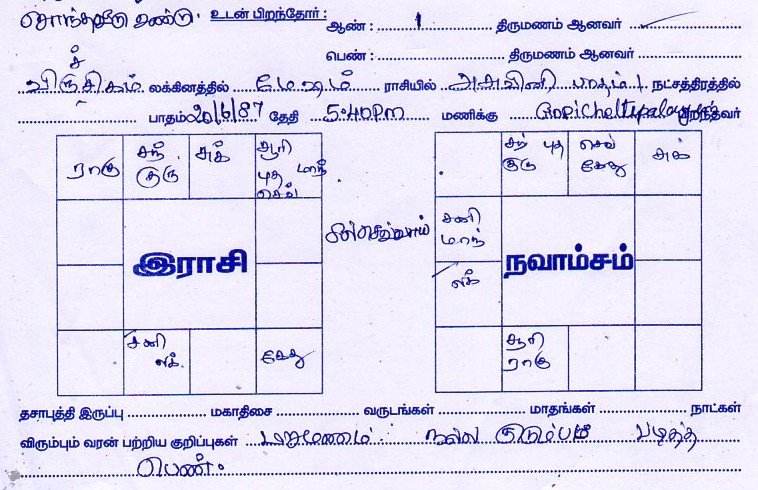 சொந்தவீடு உண்டு. உடன் பிறந்தோர் : ஆண் : 1 திருமணம் ஆனவர்
பெண் : திருமணம் ஆனவர்
விருச்சிகம் லக்கினத்தில் மேஷம் ராசியில் அஸ்வினி பாதம் 1 நட்சத்திரத்தில்
பாதம் 20/6/87 தேதி 5:40pm மணிக்கு Gopichettipalayam பிறந்தவர்
ராகு சந் குரு சுக் சூரி புத மாந் செவ்
இராசி
சனி லக் கேது
செவ்வாய்
சந் புத குரு செவ் கேது சுக்
சனி மாந்
லக்
நவாம்சம்
சூரி ராகு
தசாபுத்தி இருப்பு மகாதிசை வருடங்கள் மாதங்கள் நாட்கள்
விரும்பும் வரன் பற்றிய குறிப்புகள் நல்ல குடும்பம் படித்த
பெண்.